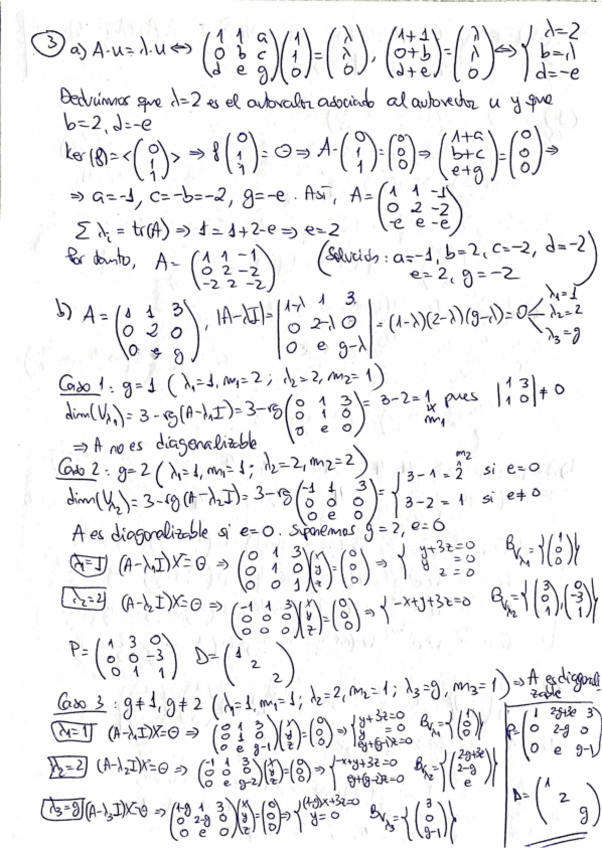 ③ a) A·u = λ·u ⇔ (1 1 a; 0 b c; d e g)(1; 1; 0) = (λ; λ; 0), (1+1; 0+b; d+e) = (λ; λ; 0) ⇔ { λ=2; b=λ; d=-e
Deducimos que λ=2 es el autovalor asociado al autovector u y que
b=2, d=-e
Ker(f) = <(0; 1; 1)> ⇒ f(0; 1; 1) = Θ ⇒ A·(0; 1; 1) = (0; 0; 0) ⇒ (1+a; b+c; e+g) = (0; 0; 0) ⇒
⇒ a=-1, c=-b=-2, g=-e. Así, A = (1 1 -1; 0 2 -2; -e e -e)
Σ λi = tr(A) ⇒ 1 = 1+2-e ⇒ e=2
Por tanto, A = (1 1 -1; 0 2 -2; -2 2 -2) (Solución: a=-1, b=2, c=-2, d=-2, e=2, g=-2)
b) A = (1 1 3; 0 2 0; 0 e g), |A-λI| = |1-λ 1 3; 0 2-λ 0; 0 e g-λ| = (1-λ)(2-λ)(g-λ) = 0 < λ1=1; λ2=2; λ3=g
Caso 1: g=1 (λ1=1, m1=2; λ2=2, m2=1)
dim(Vλ1) = 3-rg(A-λ1I) = 3-rg(0 1 3; 0 1 0; 0 e 0) = 3-2 = 1 ≠ m1 pues |1 3; 1 0| ≠ 0
⇒ A no es diagonalizable
Caso 2: g=2 (λ1=1, m1=1; λ2=2, m2=2)
dim(Vλ2) = 3-rg(A-λ2I) = 3-rg(-1 1 3; 0 0 0; 0 e 0) = { 3-1 = 2 = m2 si e=0; 3-2 = 1 si e≠0
A es diagonalizable si e=0. Suponemos g=2, e=0
λ1=1 (A-λ1I)X=Θ ⇒ (0 1 3; 0 1 0; 0 0 1)(x; y; z) = (0; 0; 0) ⇒ { y+3z=0; y=0; z=0 BVλ1 = {(1; 0; 0)}
λ2=2 (A-λ2I)X=Θ ⇒ (-1 1 3; 0 0 0; 0 0 0)(x; y; z) = (0; 0; 0) ⇒ { -x+y+3z=0 BVλ2 = {(3; 0; 1), (0; -3; 1)}
P = (1 3 0; 0 0 -3; 0 1 1) D = (1 2 2)
Caso 3: g≠1, g≠2 (λ1=1, m1=1; λ2=2, m2=1; λ3=g, m3=1) ⇒ A es diagonalizable
λ1=1 (A-λ1I)X=Θ ⇒ (0 1 3; 0 1 0; 0 e g-1)(x; y; z) = (0; 0; 0) ⇒ { y+3z=0; y=0; ey+(g-1)z=0 BVλ1 = {(1; 0; 0)}
λ2=2 (A-λ2I)X=Θ ⇒ (-1 1 3; 0 0 0; 0 e g-2)(x; y; z) = (0; 0; 0) ⇒ { -x+y+3z=0; ey+(g-2)z=0 BVλ2 = {(2-g+3e; 2-g; e)}
λ3=g (A-λ3I)X=Θ ⇒ (1-g 1 3; 0 2-g 0; 0 e 0)(x; y; z) = (0; 0; 0) ⇒ { (1-g)x+3z=0; y=0 BVλ3 = {(3; 0; g-1)}
P = (1 2-g+3e 3; 0 2-g 0; 0 e g-1)
D = (1 2 g)